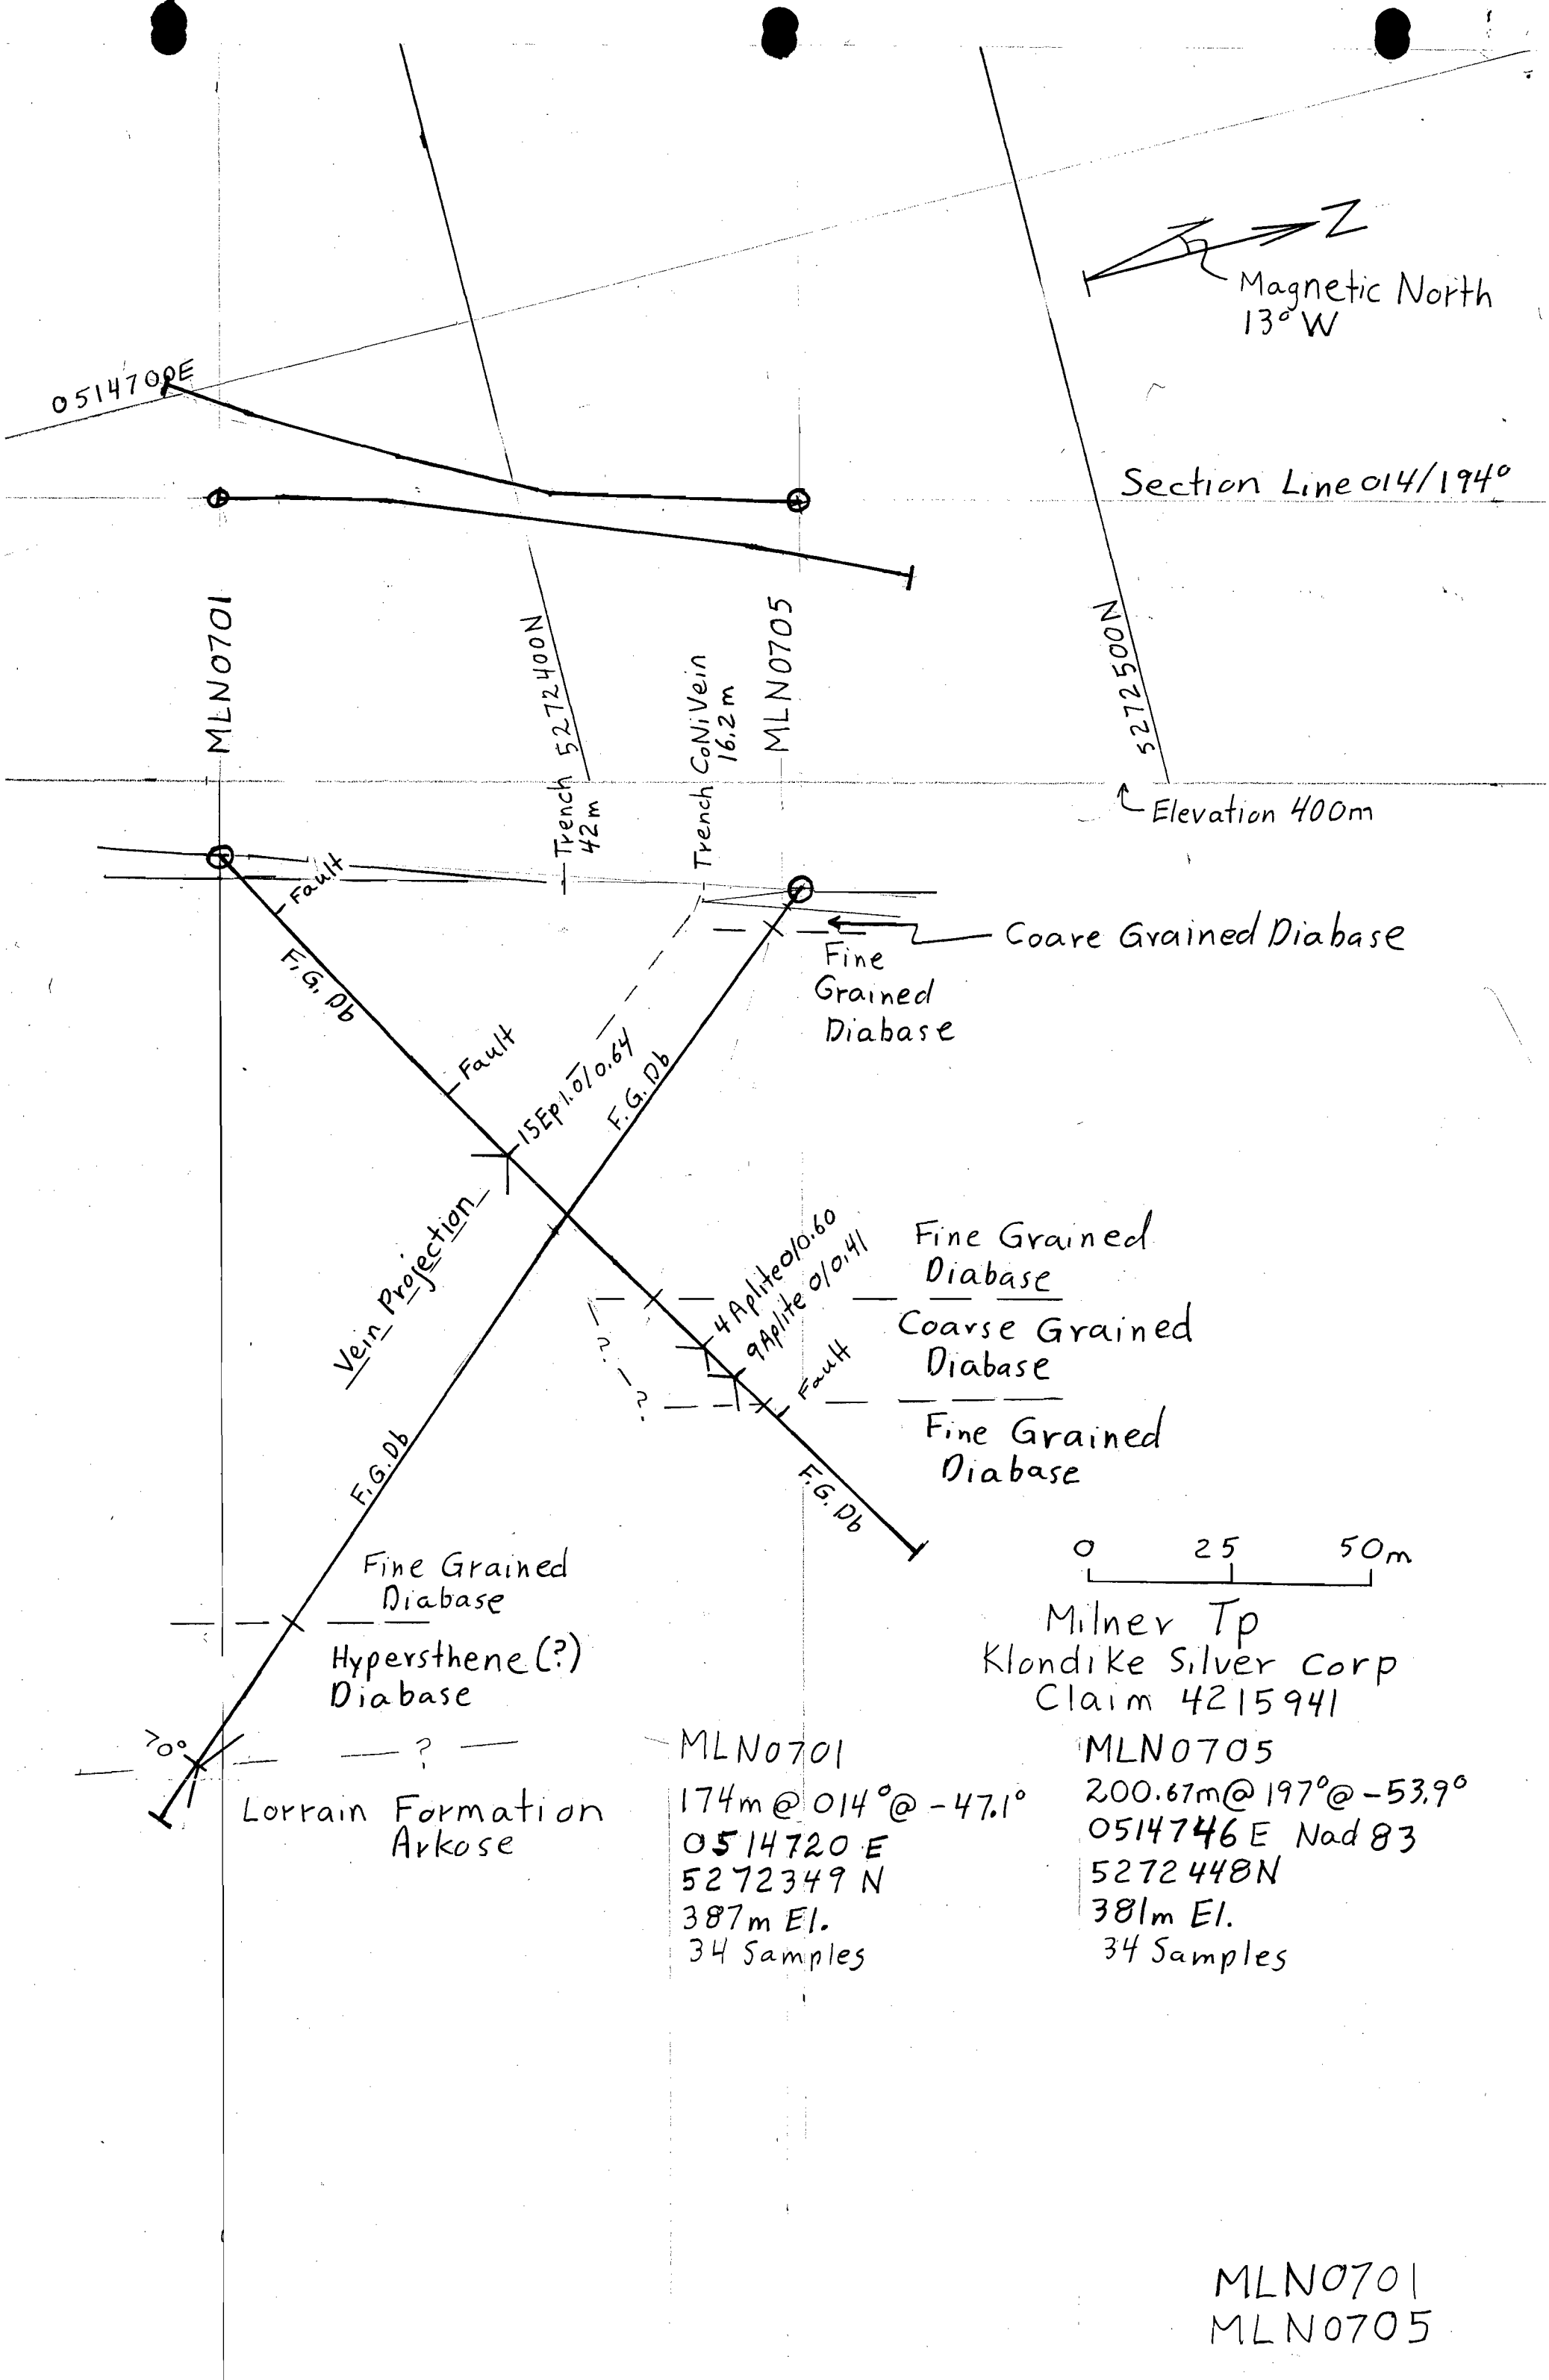 Z
Magnetic North
13°W
0514700E
Section Line 014/194°
MLN0701
5272400N
MLN0705
5272500N
Trench
42m
Trench CoNiVein
16.2m
Elevation 400m
Fault
Coare Grained Diabase
F.G. Db
Fine
Grained
Diabase
Fault
15Ep1.0/0.64
F.G. Db
Vein Projection
4 Aplite 0/0.60
9 Aplite 0/0.41
Fine Grained
Diabase
Coarse Grained
Diabase
?
?
Fault
Fine Grained
Diabase
F.G. Db
F.G. Db
0 25 50m
Fine Grained
Diabase
Hypersthene(?)
Diabase
70°
?
Lorrain Formation
Arkose
Milner Tp
Klondike Silver Corp
Claim 4215941
MLN0701
174m@014°@-47.1°
0514720 E
5272349 N
387m El.
34 Samples
MLN0705
200.67m@197°@-53.9°
0514746 E Nad 83
5272448N
381m El.
34 Samples
MLN0701
MLN0705